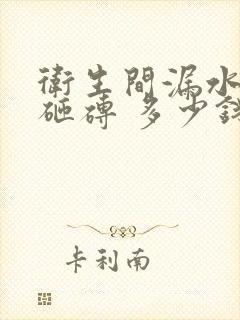 衛生間漏水
砸磚 多少錢
卡利南